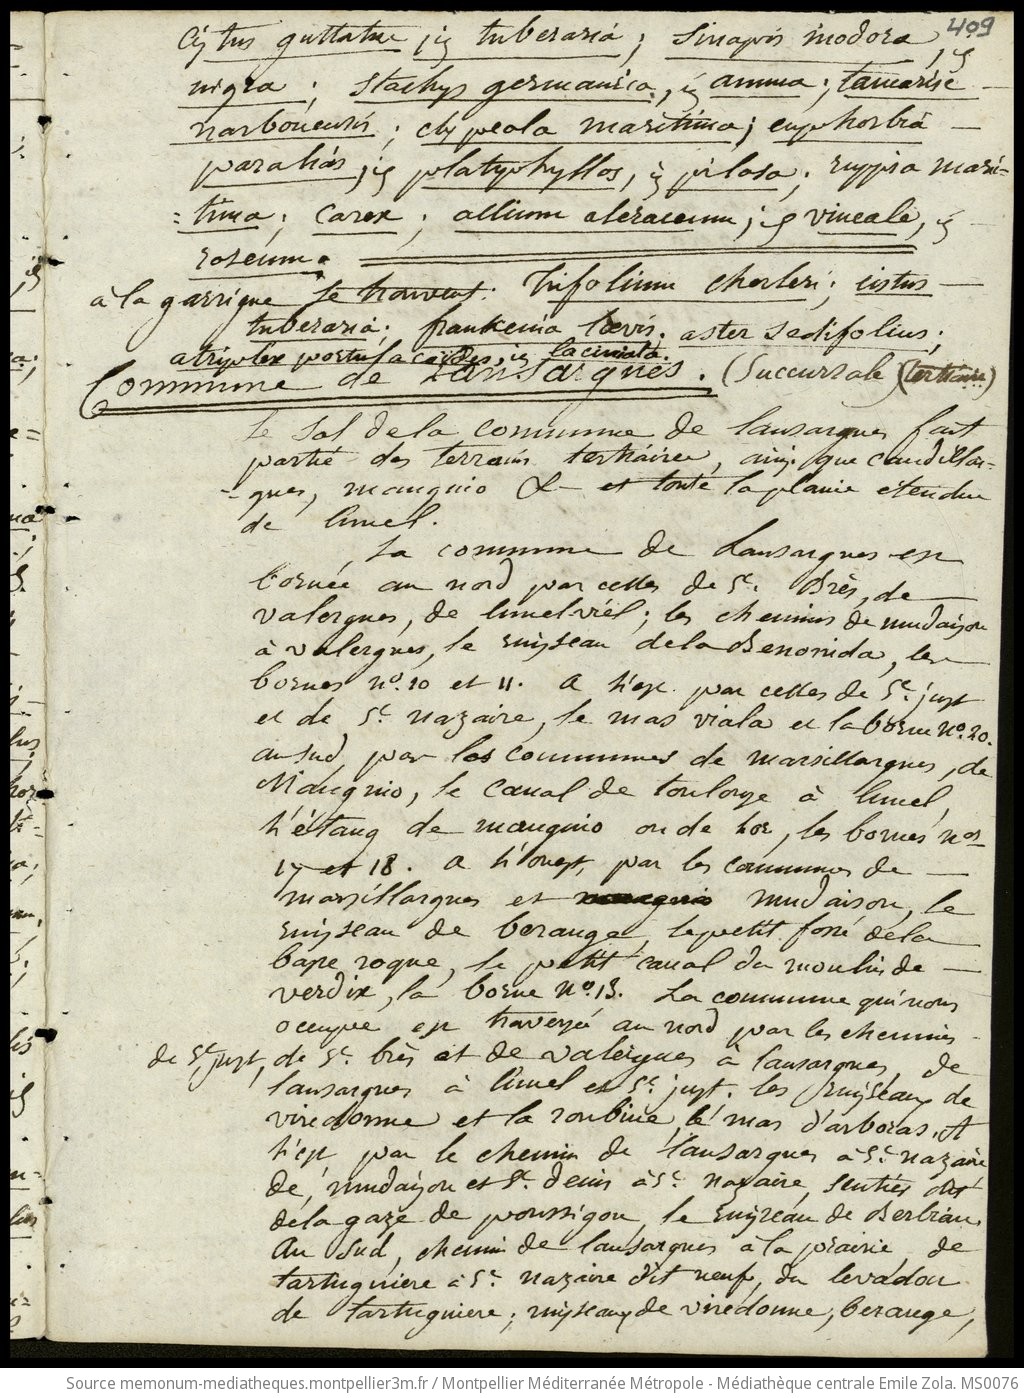 409
Cistus guttatus, id tuberaria; Sinapis inodora, id
nigra; Stachys germanica, id annua; tamarise
narbonensis; clypeola maritima; euphorbia
paralias, id platyphyllos, id pilosa; ruppia mari=
=tima; Carex; allium oleraceum; id vineale, id
roseum.
à la garrigue se trouvent: Trifolium cherleri; cistus
tuberaria; frankenia lœvis; aster sedifolius;
atriplex portulacoides, id laciniata.
Commune de Lansargues. (Succursale) (tertiaire)
Le Sol de la commune de lansargues fait
partie des terrains tertiaires, ainsi que candillar=
=gues, mauguio & et toute la plaine étendue
de lunel.
La commune de Lansargues est
bornée au nord par celles de St. Brès, de
valergues, de lunel-viel; les chemins de mudaison
à valergues, le ruisseau de la Benonida, les
bornes no. 10 et 11. A l'est par celles de St. just
et de St. nazaire, le mas viala et la borne No. 20.
au sud, par les communes de marsillargues, de
Mauguio, le canal de toulouse à lunel,
l'étang de mauguio ou de l'or, les bornes nos
17 et 18. A l'ouest, par les communes de
marsillargues et mudaison, le
ruisseau de berange, le petit fossé de la
basse roque, le petit canal du moulin de
verdix, la borne No. 13. La commune qui nous
occupe est traversée au nord par les chemins
de St. just, de St. brès et de valergues à lansargues, de
lansargues à lunel et St. just. les ruisseaux de
viredonne et la roubine, le mas d'arboras. A
l'est par le chemin de lansargues à St. nazaire
de mudaison et St. denis à St. nazaire, sentier dit
de la gaze de poussigou, le ruisseau de Berbian.
Au Sud, chemin de lansargues à la prairie, de
tartuguiere à St. nazaire dit neuf, du levadou
de tartuguiere; ruisseaux de viredonne, berange,
Source memonum-mediatheques.montpellier3m.fr / Montpellier Méditerranée Métropole - Médiathèque centrale Emile Zola. MS0076